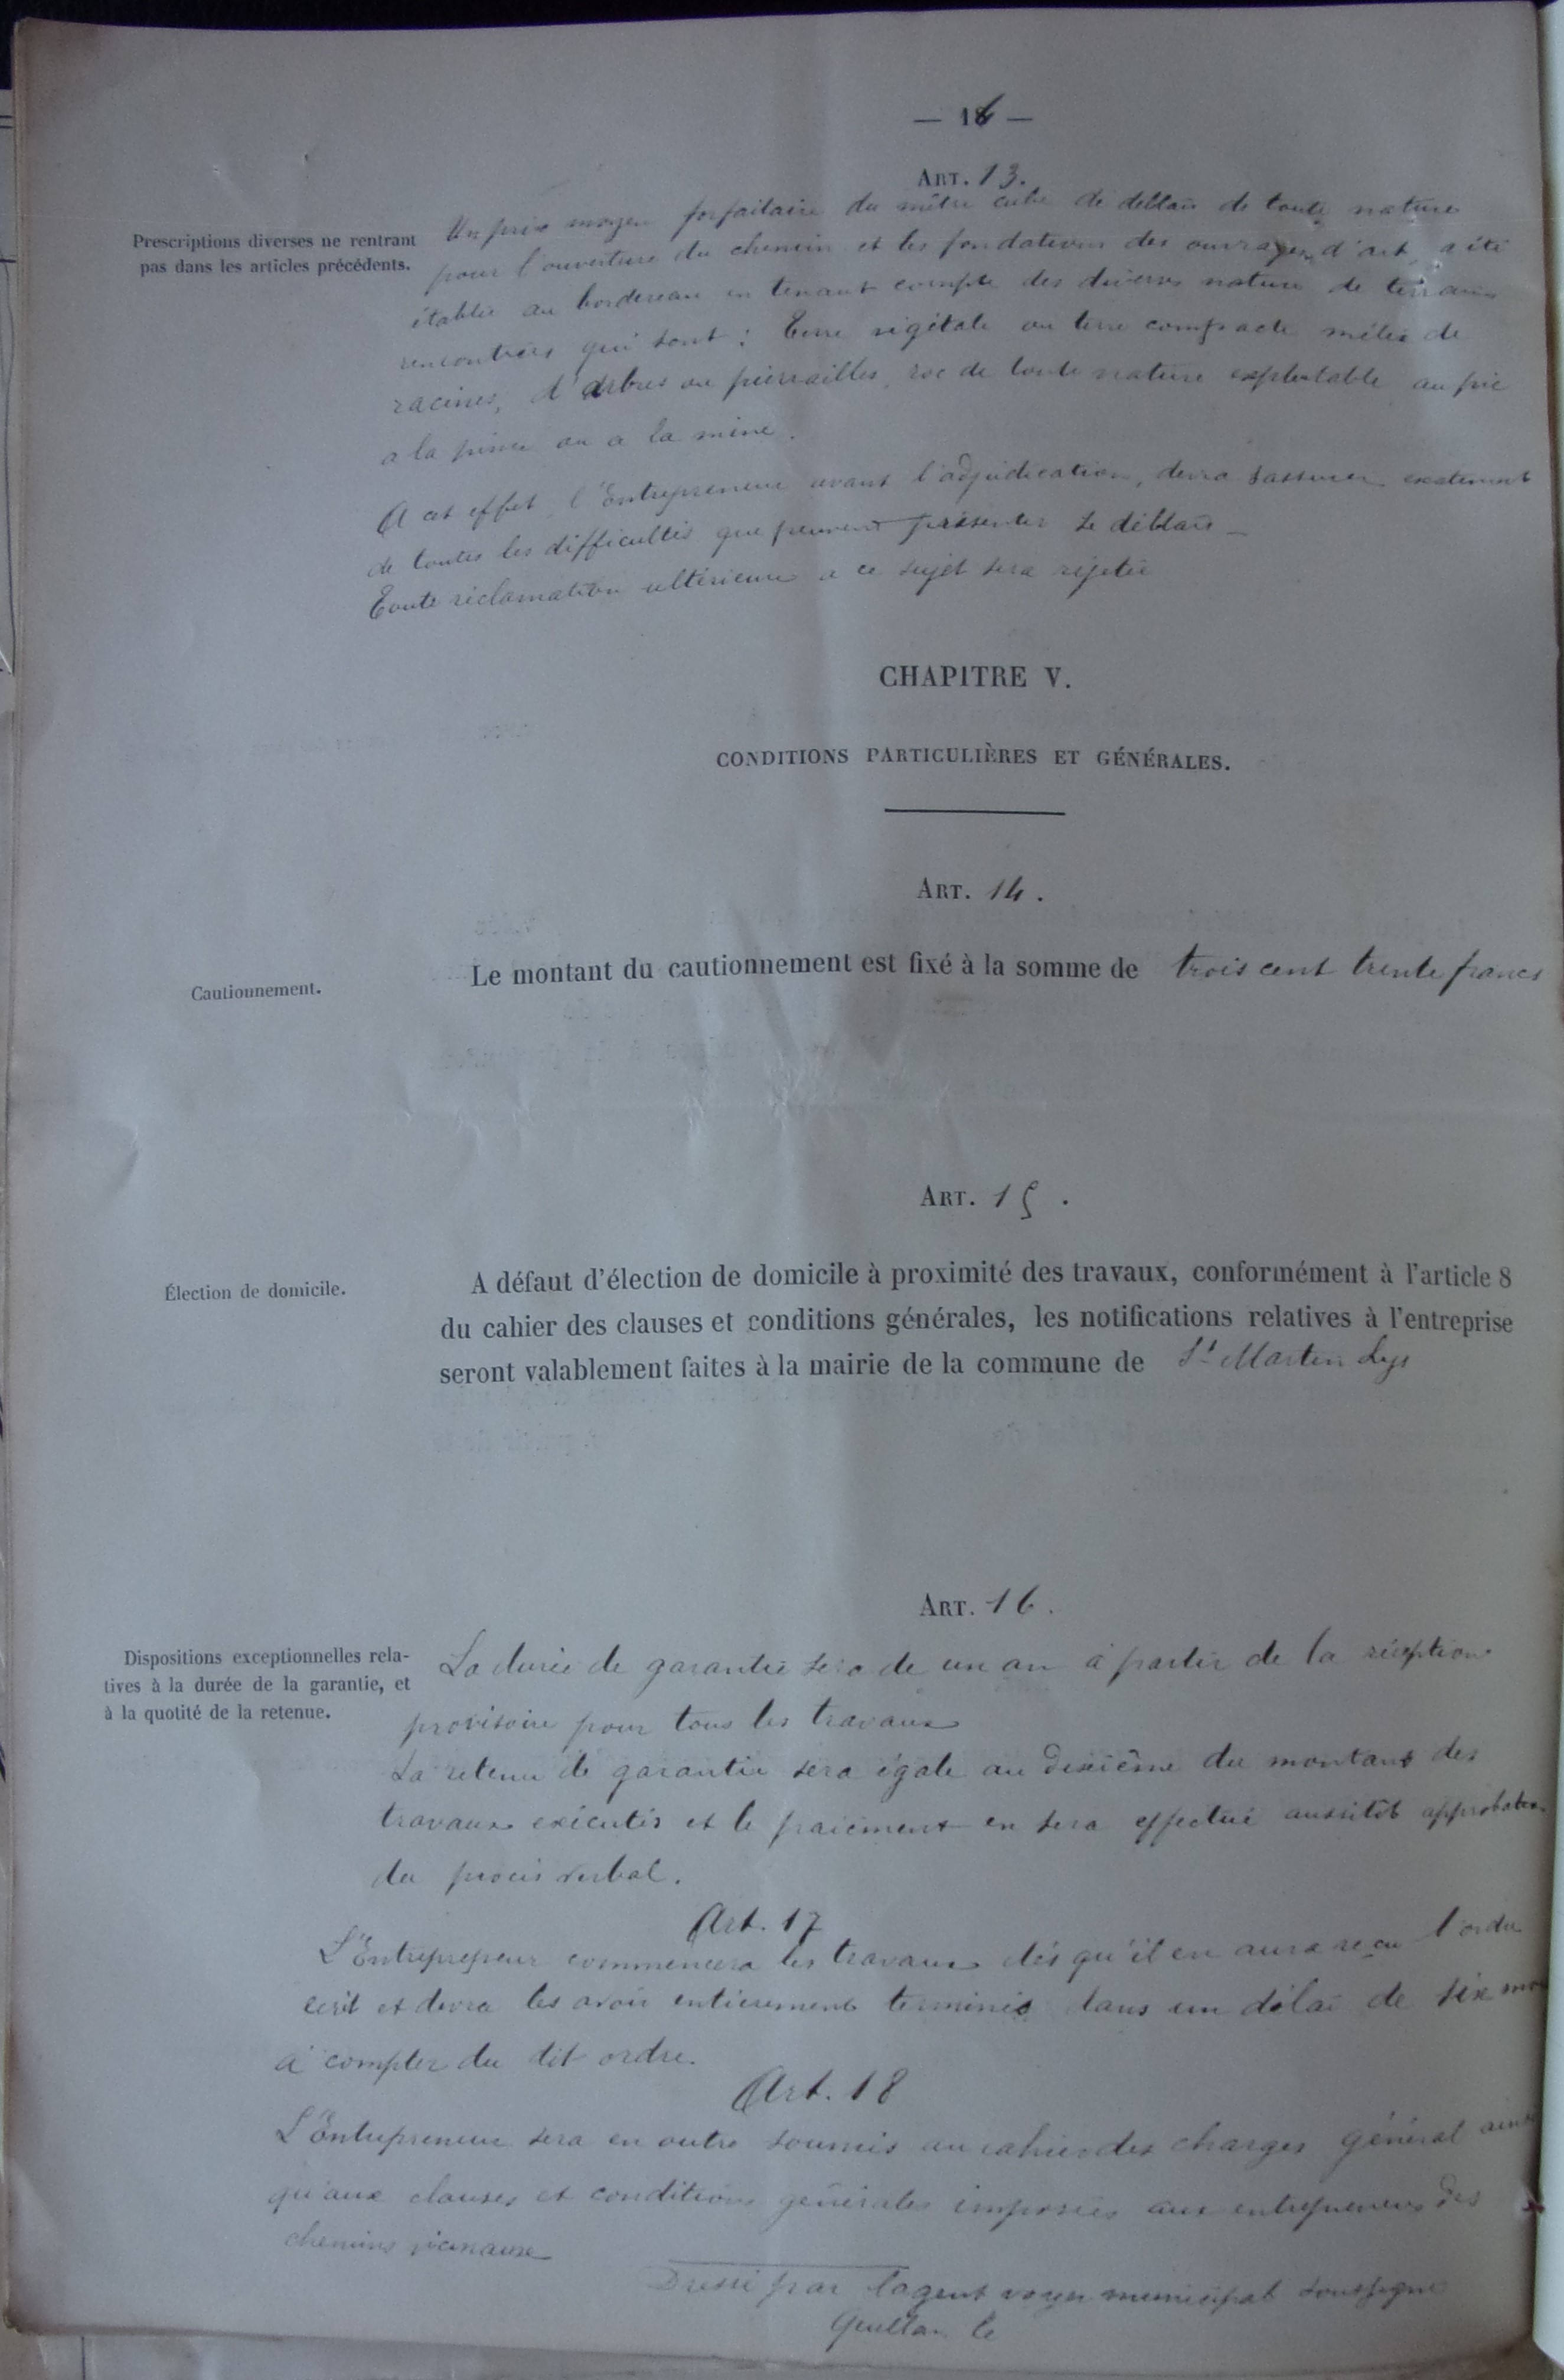 — 16 —
ART. 13.
Prescriptions diverses ne rentrant
pas dans les articles précédents.
Un prix moyen forfaitaire du mètre cube de déblais de toute nature
pour l'ouverture du chemin et les fondations des ouvrages d'art, a été
établie au bordereau en tenant compte des diverses nature de terrains
rencontrées qui sont : Terre végétale ou terre compacte mêlée de
racines, d'arbres ou pierrailles, roc de toute nature exploitable au pic
a la pince ou a la mine.
A cet effet l'Entrepreneur avant l'adjudication, devra s'assurer exactement
de toutes les difficultés que peuvent présenter le déblais —
Toute réclamation ultérieure a ce sujet sera rejetée
CHAPITRE V.
CONDITIONS PARTICULIÈRES ET GÉNÉRALES.
ART. 14.
Cautionnement.
Le montant du cautionnement est fixé à la somme de trois cent trente francs
ART. 15.
Élection de domicile.
A défaut d'élection de domicile à proximité des travaux, conformément à l'article 8
du cahier des clauses et conditions générales, les notifications relatives à l'entreprise
seront valablement faites à la mairie de la commune de St Martin Lys
ART. 16.
Dispositions exceptionnelles rela-
tives à la durée de la garantie, et
à la quotité de la retenue.
La durée de garantie sera de un an à partir de la réception
provisoire pour tous les travaux
La retenue de garantie sera égale au dixième du montant des
travaux exécutés et le paiement en sera effectué aussitôt approbation
du procès verbal.
Art. 17
L'Entrepreneur commencera les travaux dès qu'il en aura reçu l'ordre
écrit et devra les avoir entièrement terminés dans un délai de six mois
à compter du dit ordre.
Art. 18
L'Entrepreneur sera en outre soumis au cahier des charges général ainsi
qu'aux clauses et conditions générales imposées aux entrepreneurs des
chemins vicinaux
Dressé par l'agent voyer municipal soussigné
Quillan le